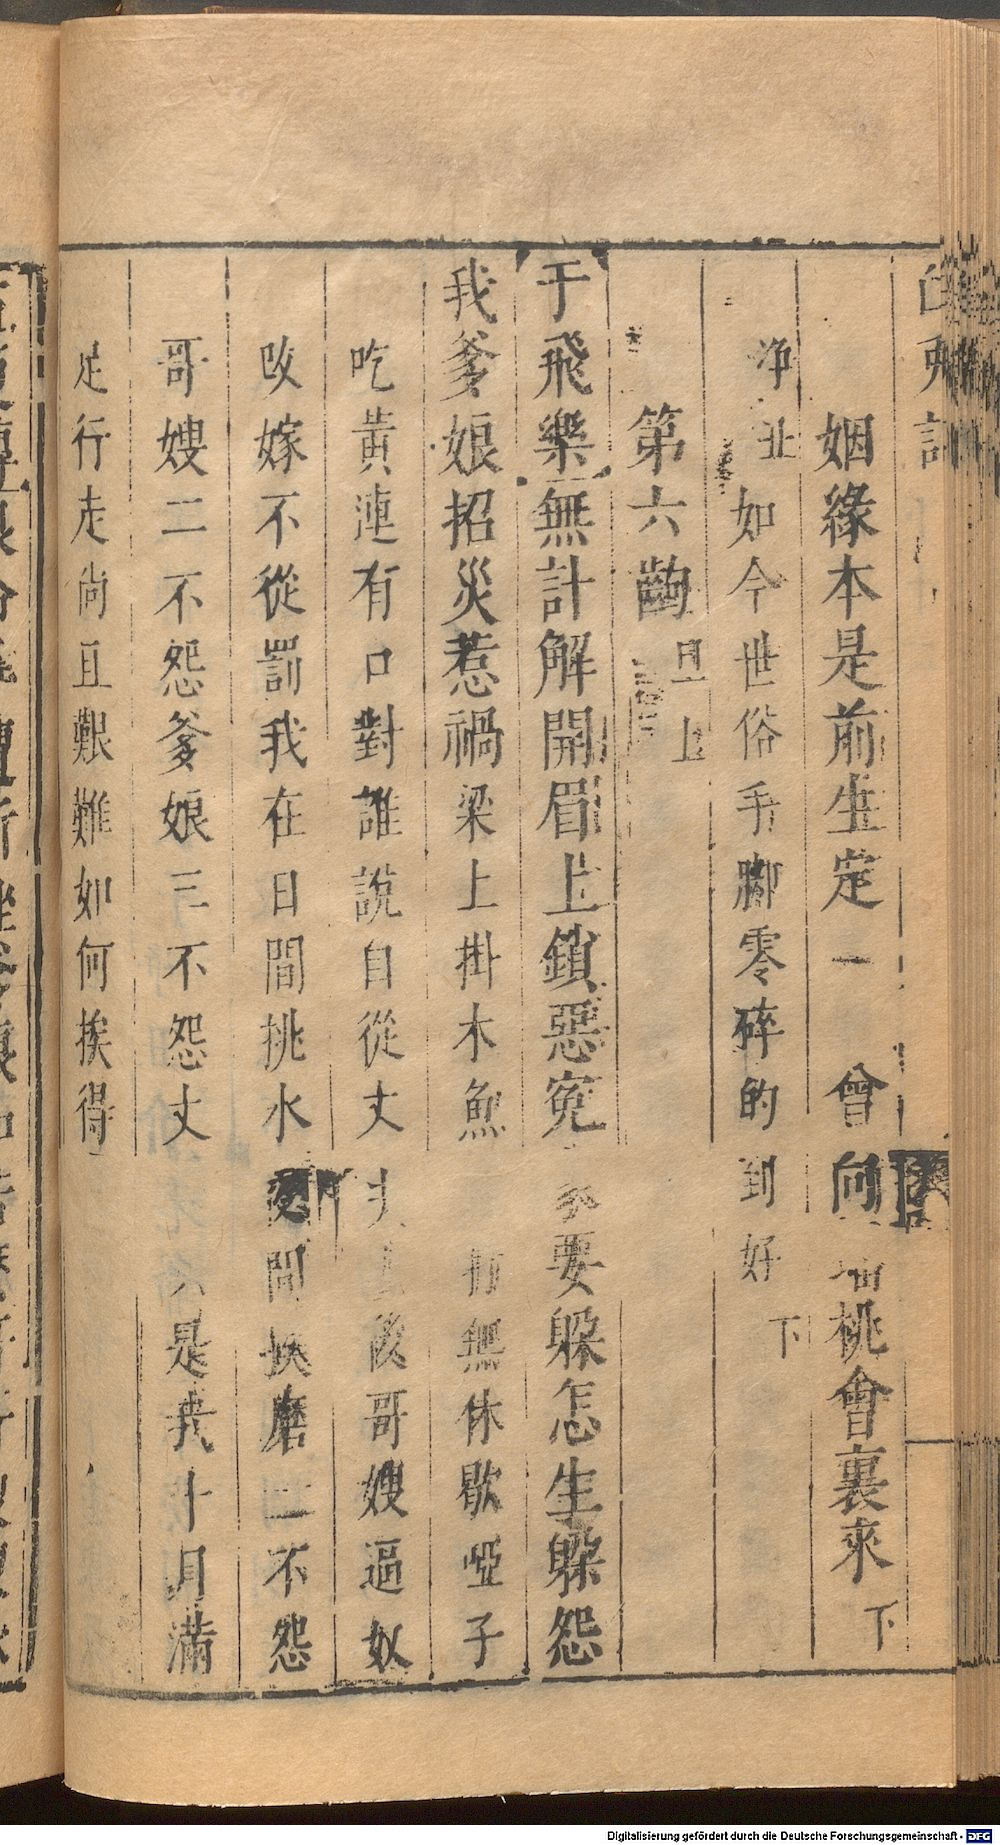 姻緣本是前生定 曾向 桃會裏來 下
净 如今世俗手脚零碎的到好 下
第六齣 旦上
于飛樂 無計解開眉上鎖惡寃 要躱怎生躱怨
我爹娘招災惹禍 梁上掛木魚 打無休歇啞子
吃黃連有口對誰說自從丈夫 後哥嫂逼奴
改嫁不從罰我在日間挑水 夜間挨磨一不怨
哥嫂二不怨爹娘三不怨丈夫 是我十月滿
足行走尚且艱難如何挨得
Digitalisierung gefördert durch die Deutsche Forschungsgemeinschaft - DFG